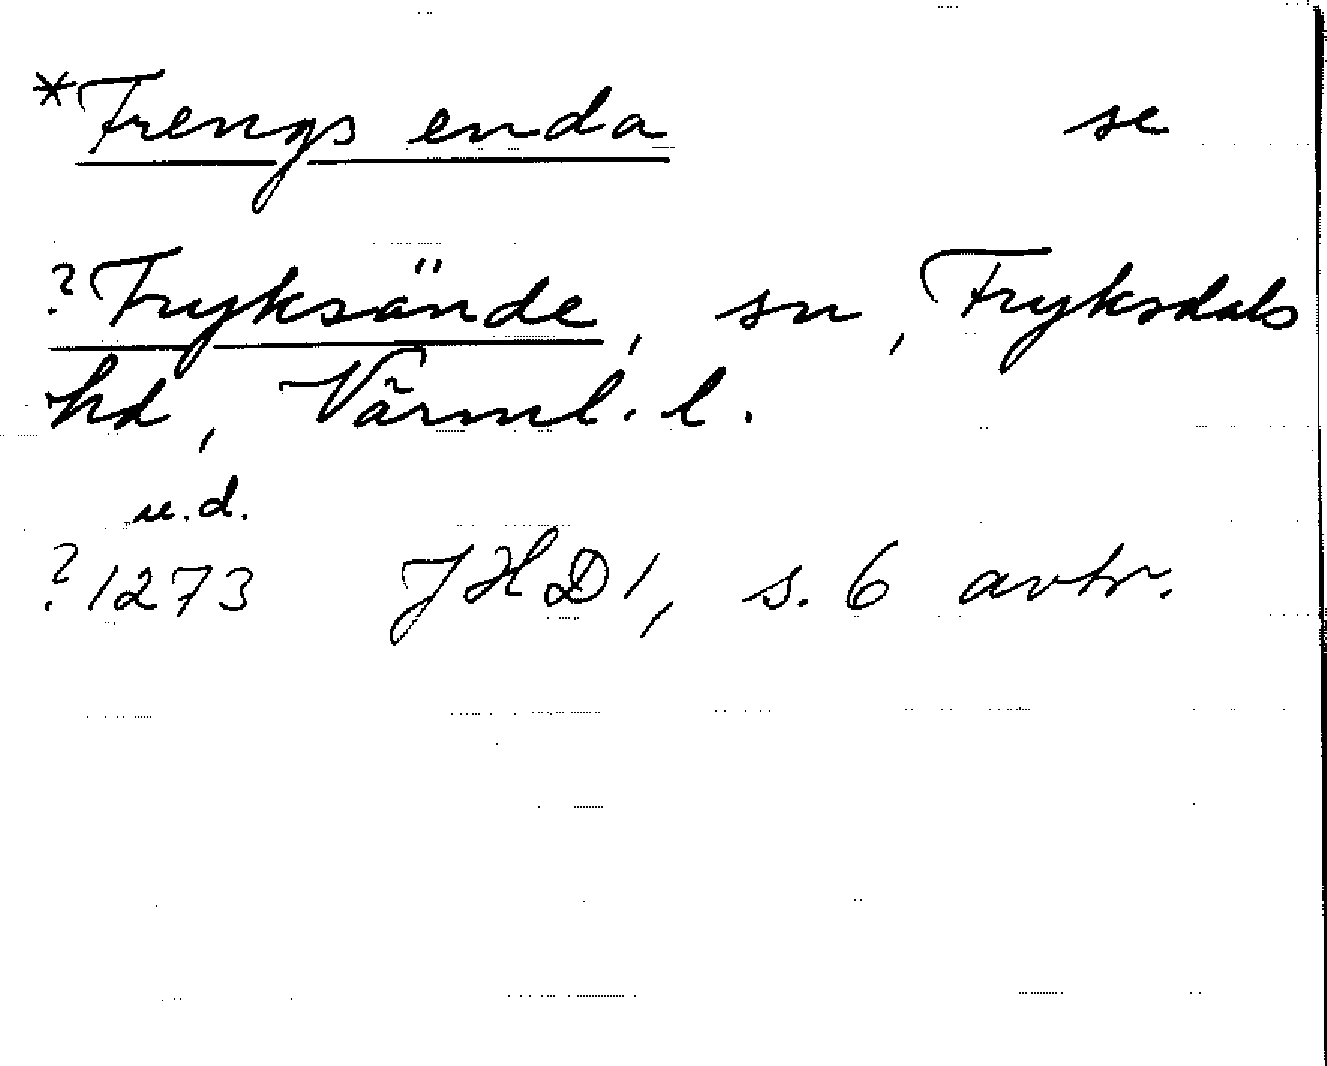 *Frengs enda se
?Fryksände, sn, Fryksdals
hd, Värml. l.
u.d.
?1273 JHD1, s. 6 avtr.